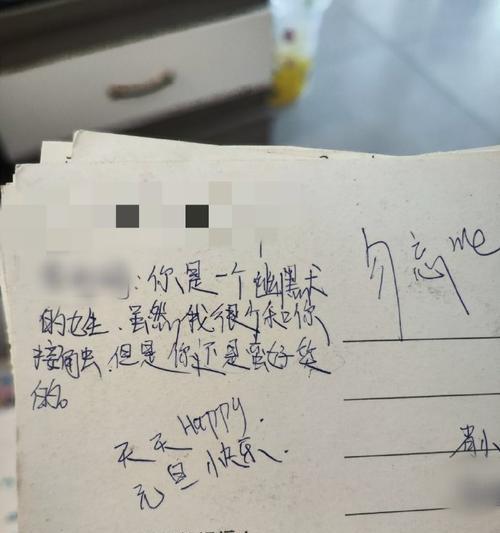 :你是一个幽默求
的女生.虽然我很少和你
接触,但是你还是蛮好笑
的。
天天 Happy.
元旦快乐.
勿忘me
肖小